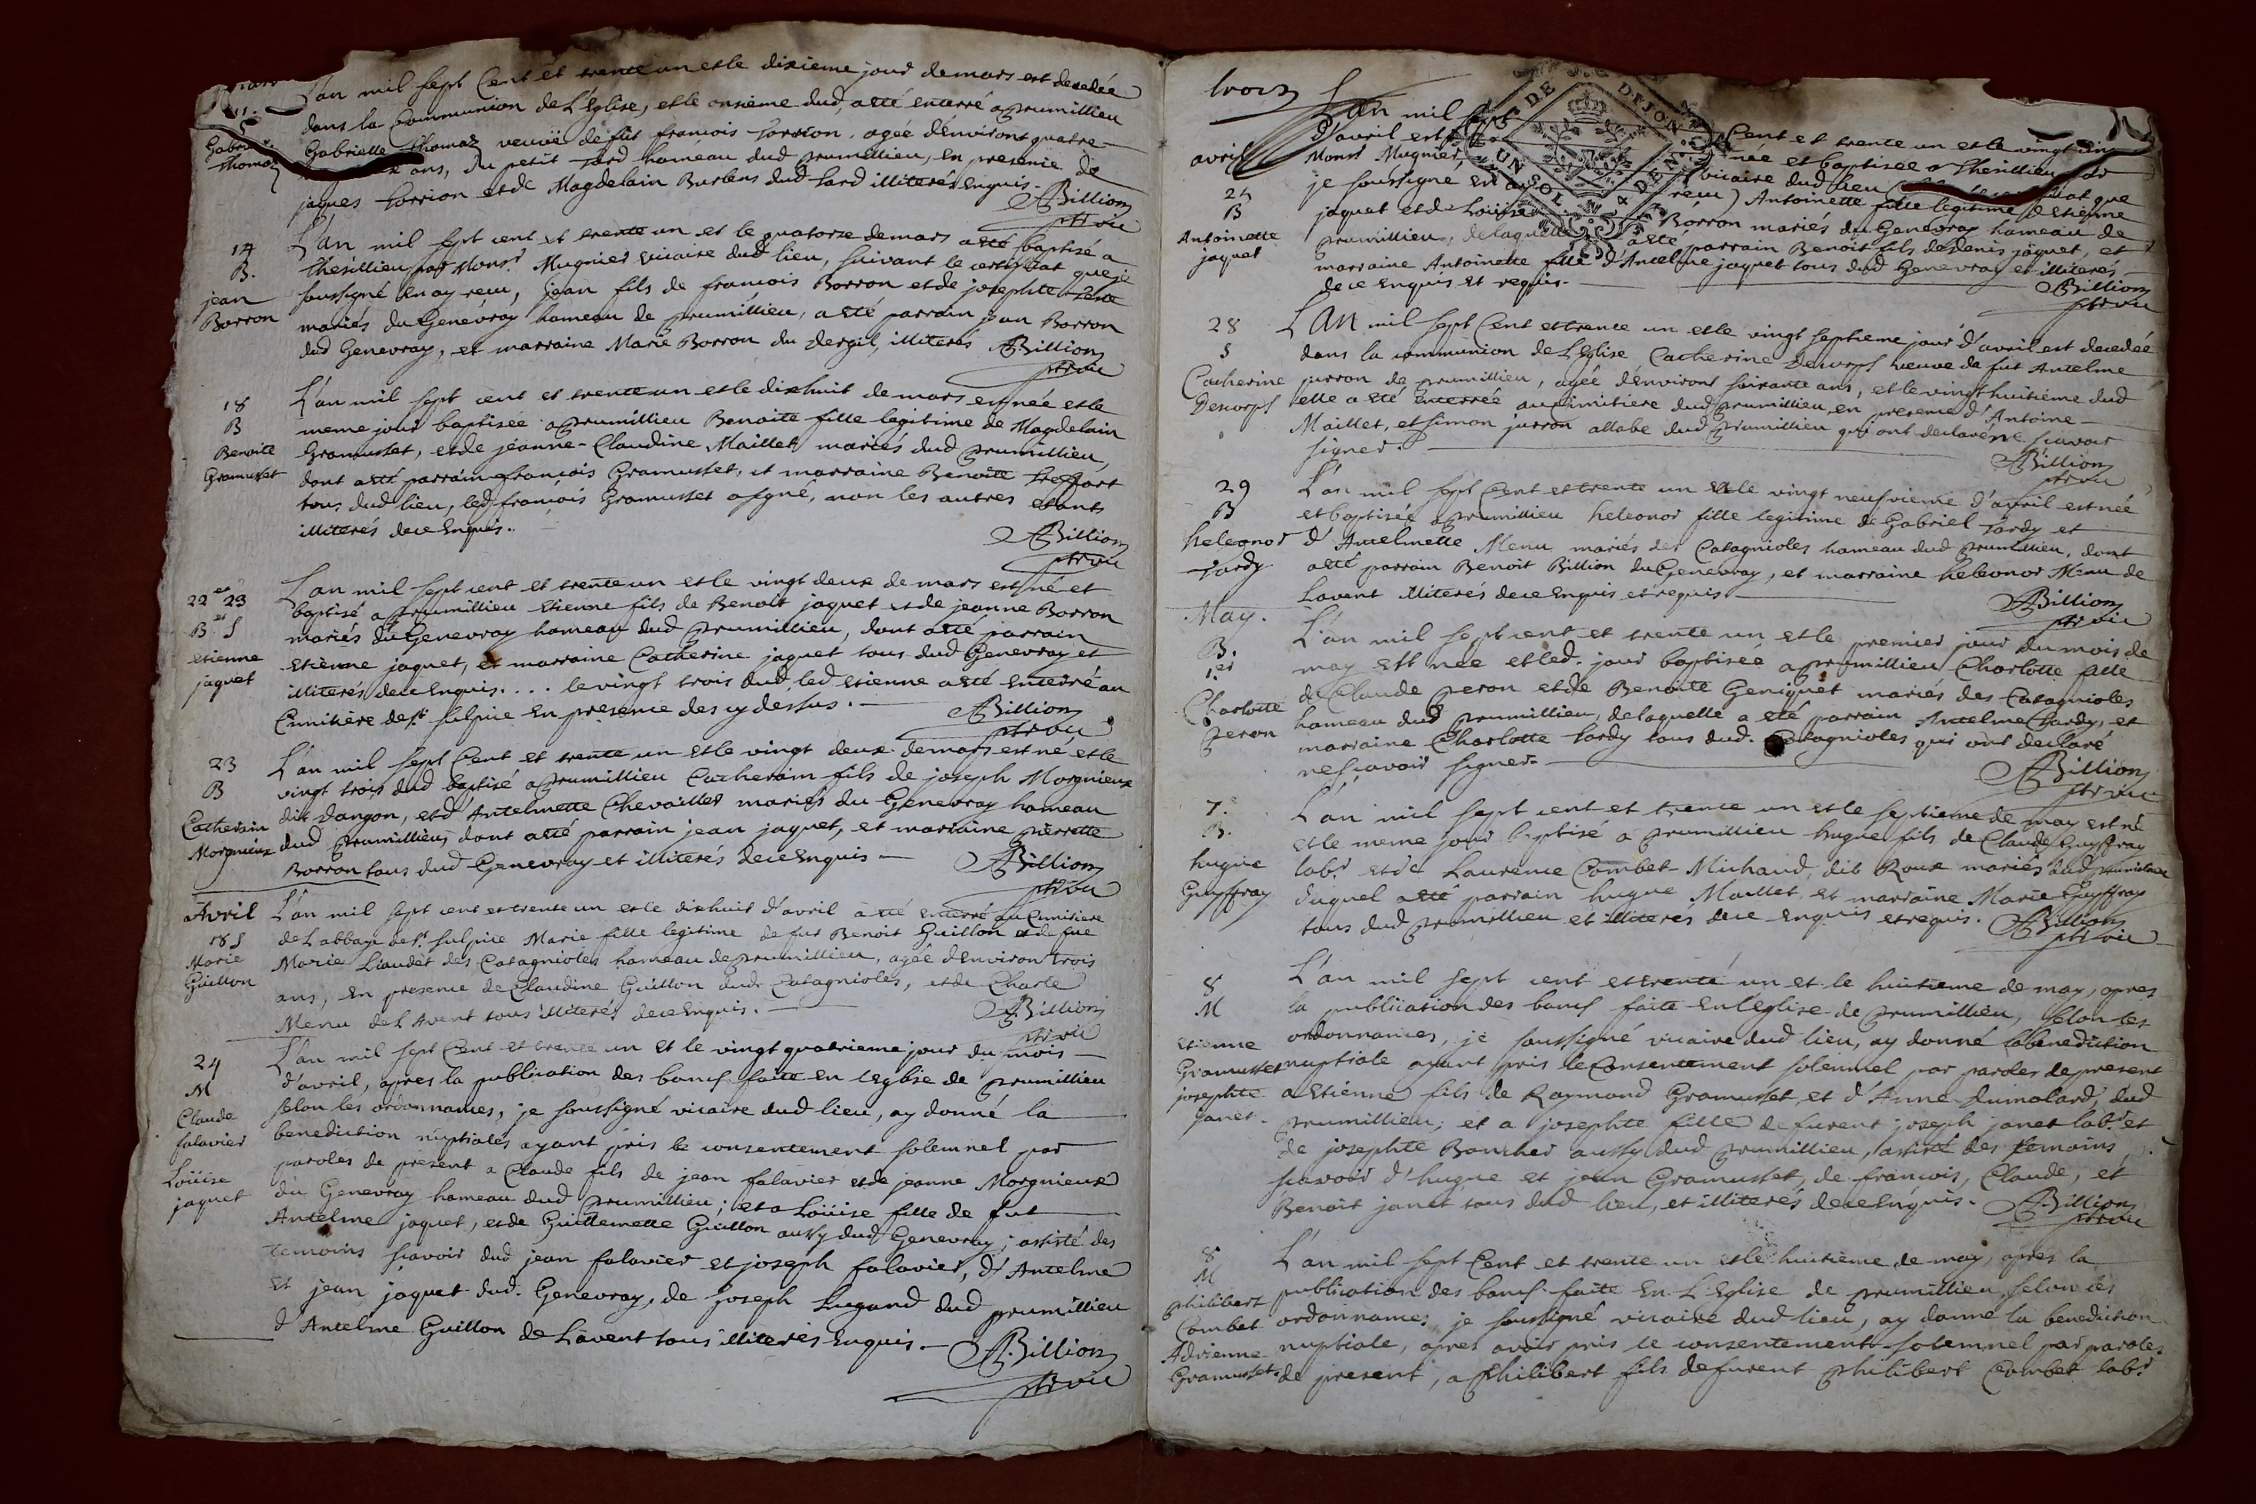 L'an mil sept Cent et trente un et le dixieme jour de mars est decedée
dans la Communion de L'Eglise, et le onsieme dud, a eté enterré a prumillieu
Gabrielle Thomaz veuve de fut francois torrion, agée d'environt quatre
ans, du petit tard hameau dud prumillieu, en presence de
jaques torrion et de Magdelain Burlens dud tard illiterés enquis.
ABillion
ptre vic
11.
Gabrielle
Thomaz
14
B.
jean
Borron
L'an mil sept cent et trente un et le quatorse de mars a eté baptisé a
thesillieu par Monsr. Mugnier vicaire dud lieu, suivant le certificat que je
soussigné en ay receu, jean fils de francois Borron et de josephte
mariés du Genevray hameau de prumillieu, a eté parrain jean Borron
dud Genevray, et marraine Marie Borron du dergit, illiterés ABillion
ptre vic
18
B
Benoite
Gramusset
L'an mil sept cent et trente un et le dixhuit de mars est née et le
meme jour baptisée a prumillieu Benoite fille legitime de Magdelain
Gramusset, et de jeanne-Claudine Maillet mariés dud prumillieu,
dont a eté parrain francois Gramusset, et marraine Benoite treffort
tous dud lieu, led francois Gramusset a signé, non les autres etants
illiterés de ce enquis.
ABillion
ptre vic
22 et 23
B et S
etienne
jaquet
L'an mil sept cent et trente un et le vingt deux de mars est né et
baptisé a prumillieu Etienne fils de Benoit jaquet et de jeanne Borron
mariés du Genevray hameau dud prumillieu, dont a eté parrain
etienne jaquet, et marraine Catherine jaquet tous dud Genevray et
illiterés de ce enquis.... le vingt trois dud, led etienne a eté enterré au
Cimitière de st. sulpice en presence des cy dessus.
ABillion
ptre vic
23
B
Catherin
Morgnieux
L'an mil sept Cent et trente un et le vingt deux de mars est né et le
vingt trois dud baptisé a prumillieu Catherain fils de joseph Morgnieux
dit dangon, et d'Antelmette Chevaillet mariés du Genevray hameau
dud prumillieu, dont a eté parrain jean jaquet, et marraine pierrette
Borron tous dud Genevray et illiterés de ce enquis ABillion
ptre vic
Avril
18 S
Marie
Guillon
L'an mil sept cent et trente un et le dixhuit d'avril a eté enterré au Cimitiere
de Labbaye de st. sulpice Marie fille legitime de fut Benoit Guillon et de fue
Marie Liaudet des Catagnioles hameau de prumillieu, agée d'environ trois
ans, en presence de Claudine Guillon dud Catagnioles, et de Charle
Menu de L'Avent tous illiterés de ce enquis.
ABillion
ptre vic
24
M
Claude
falavier
Loüise
jaquet
L'an mil sept Cent et trente un et le vingt quatrieme jour du mois
d'avril, apres la publication des bancs faite en leglise de prumillieu
selon les ordonnances, je soussigné vicaire dud lieu, ay donné la
benediction nuptiales ayant pris le consentement solemnel par
paroles de present a Claude fils de jean falavier et de jeanne Morgnieux
du Genevray hameau dud prumillieu; et a Loüise fille de fut
Antelme jaquet, et de Guillemette Guillon aussy dud Genevray; assisté des
temoins scavoir dud jean falavier et joseph falavier, d'Antelme
et jean jaquet dud. Genevray, de joseph Lugand dud prumillieu
d'Antelme Guillon de Lavent tous illiterés enquis.
ABillion
ptre vic
trois
avril
25
B
Antoinette
jaquet
L'an mil sept Cent et trente un et le vingt cinq
d'avril est née et baptisée a thesillieu par
Monsr Mugnier vicaire dud lieu
je soussigné en ay receu) Antoinette fille legitime d'Etienne
jaquet et de Loüise Borron mariés du Genevray hameau de
prumillieu, de laquelle a eté parrain Benoit fils de denis jaquet, et
marraine Antoinette fille d'Antelme jaquet tous dud Genevray et illiteres
de ce enquis et requis.
ABillion
ptre vic
28
S
Catherine
Descorps
L'an mil sept Cent et trente un et le vingt septieme jour d'avril est decedée
dans la communion de L'Eglise Catherine Descorps veuve de fut Antelme
jurron de prumillieu, agée d'environt soixante ans, et le vingt huitième dud
elle a eté enterrée au Cimitiere dud prumillieu en presence d'Antoine
Maillet, et simon jurron allabe dud prumillieu qui ont declaré ne scavoir
signer.
ABillion
ptre vic
29
B
heleonor
tardy
L'an mil sept Cent et trente un et le vingt neufvieme d'avril est née
et baptisée a prumillieu heleonor fille legitime de Gabriel tardy et
d'Antelmette Menu mariés des Catagnioles hameau dud prumillieu, dont
a eté parrain Benoit Billion du Genevray, et marraine heleonor Menu de
Lavent illiterés de ce enquis et requis
ABillion
ptre vic
May.
B.
1.er
Charlotte
peron
L'an mil sept cent et trente un et le premier jour du mois de
may est née et led. jour baptisée a prumillieu Charlotte fille
de Claude peron et de Benoite Geniquet mariés des Catagnioles
hameau dud prumillieu, de laquelle a eté parrain Antelme tardy, et
marraine Charlotte tardy tous dud. Catagnioles qui ont declaré
ne scavoir signer.
ABillion
ptre vic
7.
B.
hugue
Guyffray
L'an mil sept cent et trente un et le septieme de may est né
et le meme jour baptisé a prumillieu hugue fils de Claude Guyffray
labr. et de Laurence Combet-Michaud, dit Roux mariés dud prumillieu
duquel a eté parrain hugue Maillet et marraine Marie Guyffray
tous dud prumillieu et illiteres de ce enquis et requis. ABillion
ptre vic
8
M
Etienne
Gramusset
josephte
janet.
L'an mil sept cent et trente un et le huitieme de may, apres
la publication des bancs faite en l'eglise de prumillieu, selon les
ordonnances, je soussigné vicaire dud lieu, ay donné la benediction
nuptiale ayant pris le Consentement solemnel par paroles de present
a Etienne fils de Raymond Gramusset, et d'Anne dumolard, dud
prumillieu; et a josephte fille de furent joseph janet labr. et
de josephte Boucher aussy dud prumillieu, assisté des temoins
scavoir d'hugue et jean Gramusset, de francois, Claude, et
Benoit janet tous dud lieu, et illiterés de ce enquis. ABillion
ptre vic
8
M
philibert
Combet
Adrienne
Gramusset.
L'an mil sept Cent et trente un et le huitième de may, apres la
publication des bancs faite en L'Eglise de prumillieu, selon les
ordonnances, je soussigné vicaire dud lieu, ay donné la benediction
nuptiale, apres avoir pris le consentement solemnel par paroles
de present, a philibert fils de furent philibert Combet labr.
G DE DIJON
UN SOL 4 DEN